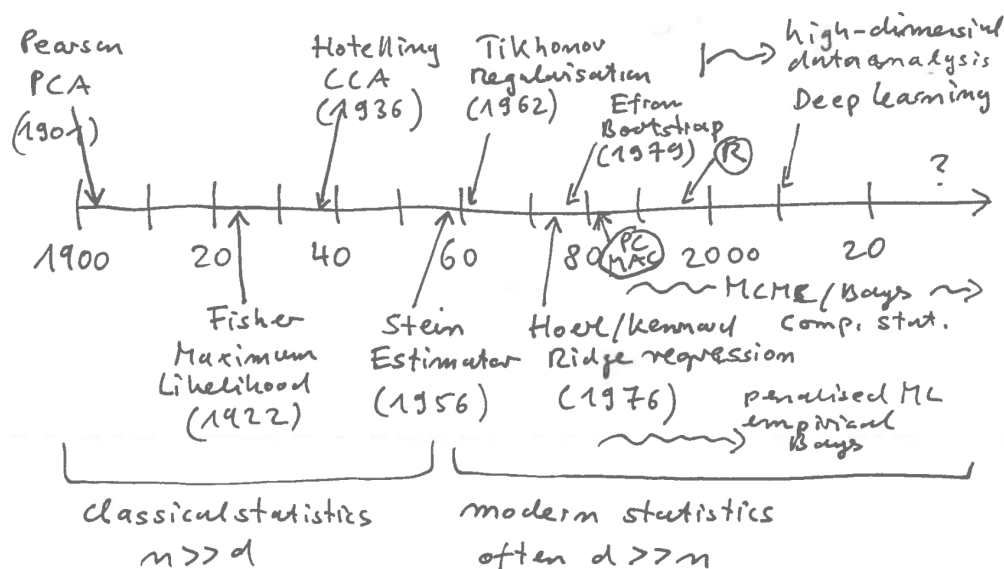 Pearson
PCA
(1901)
Hotelling
CCA
(1936)
Tikhonov
Regularisation
(1962)
Efron
Bootstrap
(1979)
R
high-dimensial
data analysis
Deep learning
?
1900
20
40
60
80
PC
MAC
2000
20
MCMC/Bays
Comp. stat.
Fisher
Maximum
Likelihood
(1922)
Stein
Estimator
(1956)
Hoerl/Kennard
Ridge regression
(1976)
penalised ML
empirical
Bays
classical statistics
n >> d
modern statistics
often d >> n